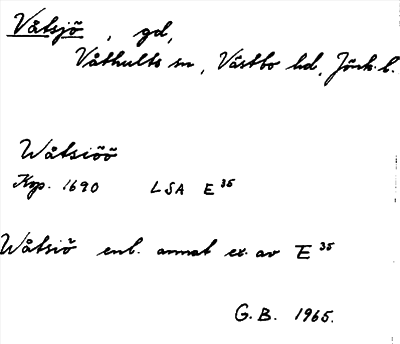 Våtsjö, gd,
Våthults sn, Västbo hd, Jönk. l.
Wåtsiöö
Kop. 1690 LSA E 35
Wåtsiö enl. annat ex. av E 35
G. B. 1965.